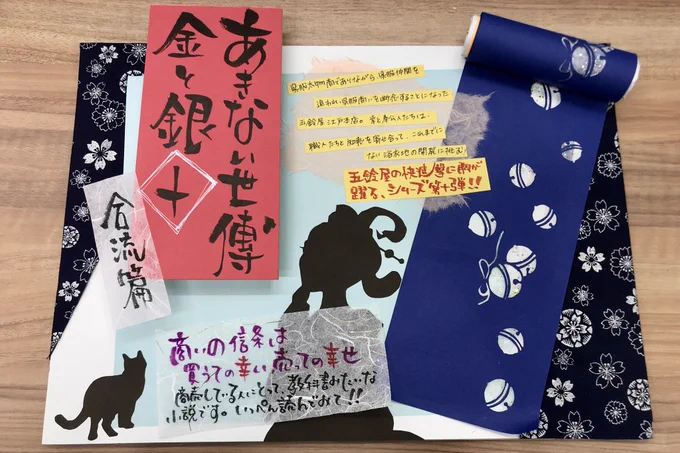 あきない世傳
金と銀
十
合流篇
呉服太物商でありながら呉服仲間を
追われ、呉服商いを断念することになった
五鈴屋江戸本店。幸と奉公人たちは、
職人たちと知恵を寄せ合って、これまでに
ない浴衣地の開発に挑む
五鈴屋の快進撃に胸が
躍る、シリーズ第十弾!!
商いの信条は
買うての幸い、売っての幸せ
商売してる人にとって、教科書みたいな
小説です。いっぺん読んでみて!!